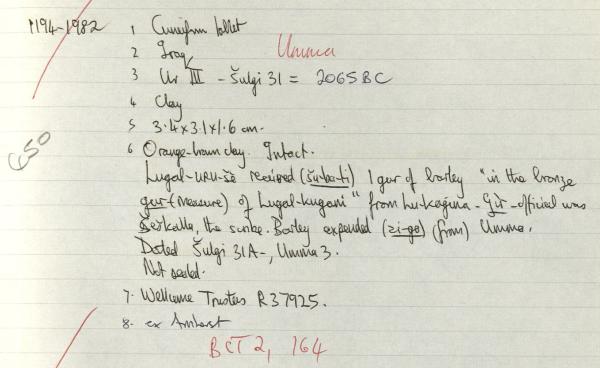 1194-1982
1 Cuneiform tablet
2 Iraq Umma
3 Ur III - Šulgi 31 = 2065 BC
4 Clay
5 3.4x3.1x1.6 cm.
650
6 Orange-brown clay. Intact.
Lugal-uru-šè received (šu-ba-ti) 1 gur of barley "in the bronze
gur-(measure) of Lugal-kugani" from Lu-kagina - Gìr-official was
Šeškalla, the scribe. Barley expended (zi-ga) (from) Umma.
Dated Šulgi 31A-, Umma 3.
Not sealed.
7. Wellcome Trustees R37925.
8. ex Amherst
BCT 2, 164